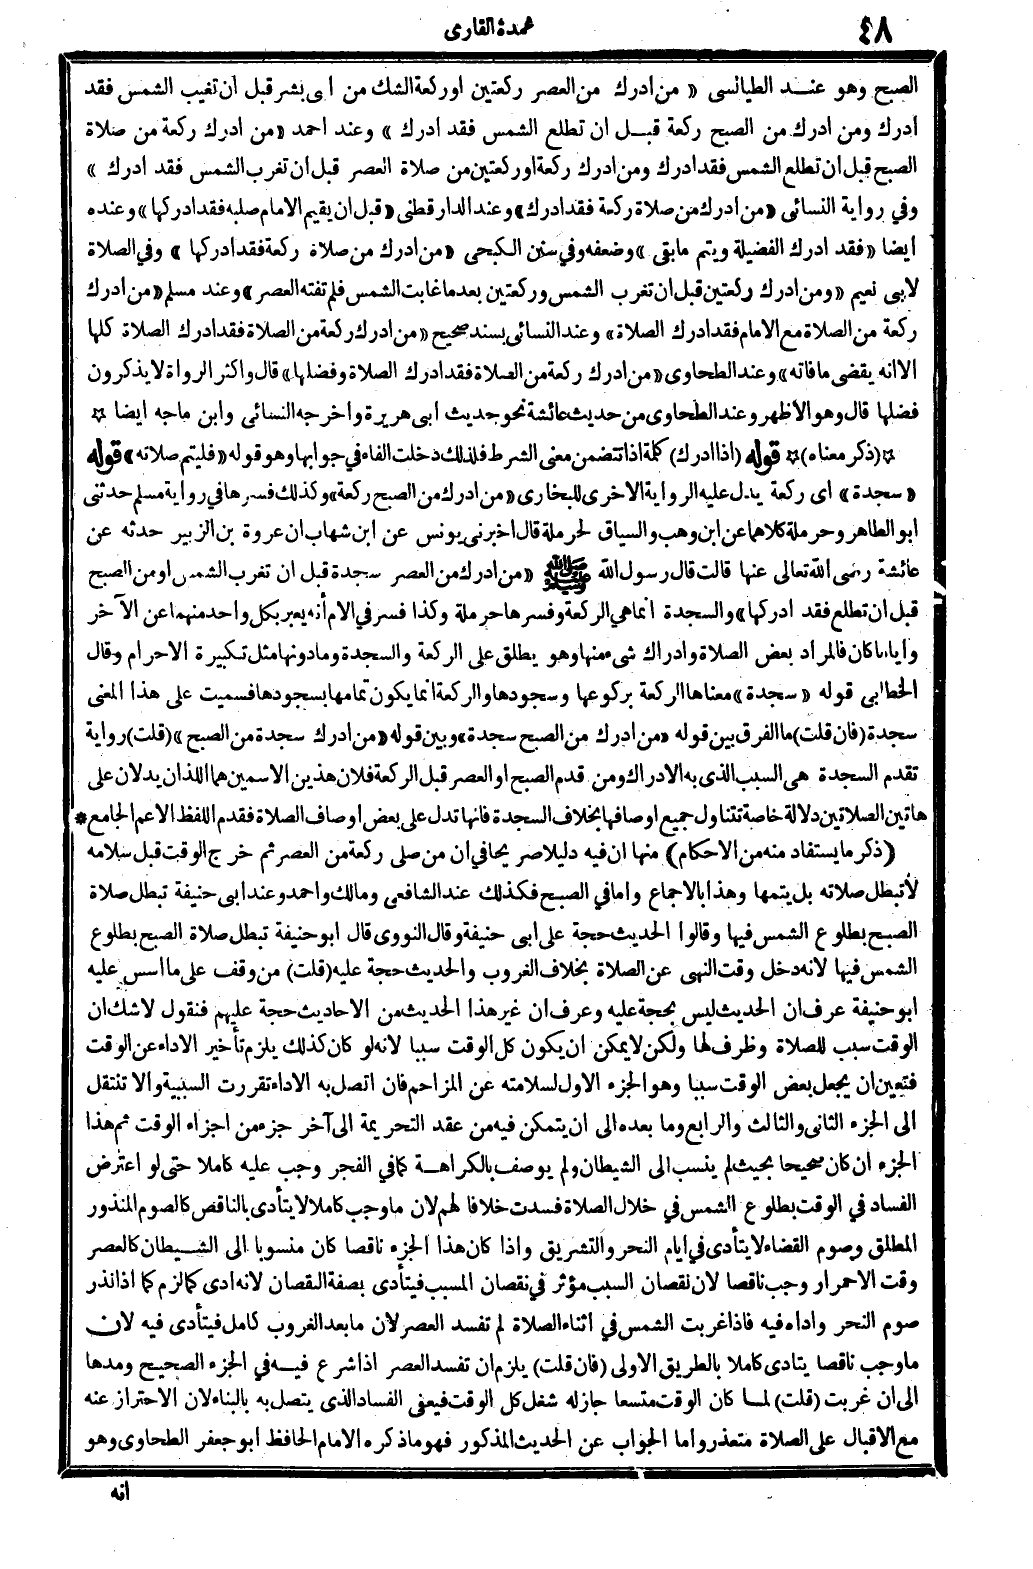 ٤٨
عمدة القارى
الصبح وهو عنـــد الطيالسى « من ادرك من العصر ركعتين او ركعة الشك من ابى بشر قبل ان تغيب الشمس فقد
ادرك ومن ادرك من الصبح ركعة قبـــل ان تطلع الشمس فقد ادرك » وعند احمد « من ادرك ركعة من صلاة
الصبح قبل ان تطلع الشمس فقد ادرك ومن ادرك ركعة اوركعتين من صلاة العصر قبل ان تغرب الشمس فقد ادرك »
وفي رواية النسائى « من ادرك من صلاة ركعة فقد ادرك » وعند الدار قطنى « قبل ان يقيم الامام صلبه فقد ادركها » وعنده
ايضا « فقد ادرك الفضيلة ويتم مابقى » وضعفه وفي سنن الكبحى « من ادرك من صلاة ركعة فقد ادركها » وفي الصلاة
لابى نعيم « ومن ادرك ركعتين قبل ان تغرب الشمس وركعتين بعد ماغابت الشمس فلم تفته العصر » وعند مسلم « من ادرك
ركعة من الصلاة مع الامام فقد ادرك الصلاة » وعند النسائى بسند صحيح « من ادرك ركعة من الصلاة فقد ادرك الصلاة كلها
الا انه يقضى مافاته » وعند الطحاوى « من ادرك ركعة من الصلاة فقد ادرك الصلاة وفضلها » قال واكثر الرواة لا يذكرون
فضلها قال وهو الاظهر وعند الطحاوى من حديث عائشة نحو حديث ابى هريرة واخرجه النسائى وابن ماجه ايضا ☆
☆ ( ذكر معناه ) ☆ قوله ( اذا ادرك ) كلمة اذا تتضمن معنى الشرط فلذلك دخلت الفاء في جوابها وهو قوله « فليتم صلاته » قوله
« سجدة » اى ركعة يدل عليه الرواية الاخرى للبخارى « من ادرك من الصبح ركعة » وكذلك فسرها في رواية مسلم حدثنى
ابو الطاهر وحرملة كلاهما عن ابن وهب والسياق لحرملة قال اخبرنى يونس عن ابن شهاب ان عروة بن الزبير حدثه عن
عائشة رضى الله تعالى عنها قالت قال رسول الله ﷺ « من ادرك من العصر سجدة قبل ان تغرب الشمس او من الصبح
قبل ان تطلع فقد ادركها » والسجدة انما هى الركعة وفسرها حرملة وكذا فسر في الام أنه يعبر بكل واحد منهما عن الآخر
وايا ما كان فالمراد بعض الصلاة وادراك شىء منها وهو يطلق على الركعة والسجدة وما دونها مثل تكبيرة الاحرام وقال
الخطابى قوله « سجدة » معناها الركعة بركوعها وسجودها والركعة انما يكون تمامها بسجودها فسميت على هذا المعنى
سجدة ( فان قلت ) ما الفرق بين قوله « من ادرك من الصبح سجدة » وبين قوله « من ادرك سجدة من الصبح » ( قلت ) رواية
تقدم السجدة هى السبب الذى به الادراك ومن قدم الصبح او العصر قبل الركعة فلان هذين الاسمين هما اللذان يدلان على
هاتين الصلاتين دلالة خاصة تتناول جميع اوصافها بخلاف السجدة فانها تدل على بعض اوصاف الصلاة فقدم اللفظ الاعم الجامع *
( ذكر ما يستفاد منه من الاحكام ) منها ان فيه دليلا صريحا في ان من صلى ركعة من العصر ثم خرج الوقت قبل سلامه
لا تبطل صلاته بل يتمها وهذا بالاجماع واما في الصبح فكذلك عند الشافعى ومالك واحمد وعند ابى حنيفة تبطل صلاة
الصبح بطلوع الشمس فيها وقالوا الحديث حجة على ابى حنيفة وقال النووى قال ابو حنيفة تبطل صلاة الصبح بطلوع
الشمس فيها لانه دخل وقت النهى عن الصلاة بخلاف الغروب والحديث حجة عليه ( قلت ) من وقف على ما اسس عليه
ابو حنيفة عرف ان الحديث ليس بحجة عليه وعرف ان غير هذا الحديث من الاحاديث حجة عليهم فنقول لا شك ان
الوقت سبب للصلاة وظرف لها ولكن لا يمكن ان يكون كل الوقت سببا لانه لو كان كذلك يلزم تأخير الاداء عن الوقت
فتعين ان يجعل بعض الوقت سببا وهو الجزء الاول لسلامته عن المزاحم فان اتصل به الاداء تقررت السببية والا تنتقل
الى الجزء الثانى والثالث والرابع وما بعده الى ان يتمكن فيه من عقد التحريمة الى آخر جزء من اجزاء الوقت ثم هذا
الجزء ان كان صحيحا بحيث لم ينسب الى الشيطان ولم يوصف بالكراهـــة كما في الفجر وجب عليه كاملا حتى لو اعترض
الفساد في الوقت بطلوع الشمس في خلال الصلاة فسدت خلافا لهم لان ما وجب كاملا لا يتأدى بالناقص كالصوم المنذور
المطلق وصوم القضاء لا يتأدى في ايام النحر والتشريق واذا كان هذا الجزء ناقصا كان منسوبا الى الشيطان كالعصر
وقت الاحمرار وجب ناقصا لان نقصان السبب مؤثر في نقصان المسبب فيتأدى بصفة النقصان لانه ادى كما لزم كما اذا نذر
صوم النحر واداه فيه فاذا غربت الشمس في اثناء الصلاة لم تفسد العصر لان مابعد الغروب كامل فيتأدى فيه لان
ما وجب ناقصا يتادى كاملا بالطريق الاولى ( فان قلت ) يلزم ان تفسد العصر اذا شرع فيـــه في الجزء الصحيح ومدها
الى ان غربت ( قلت ) لمـــا كان الوقت متسعا جاز له شغل كل الوقت فيعفى الفساد الذى يتصل به بالبناء لان الاحتراز عنه
مع الاقبال على الصلاة متعذر واما الجواب عن الحديث المذكور فهو ما ذكره الامام الحافظ ابو جعفر الطحاوى وهو
انه